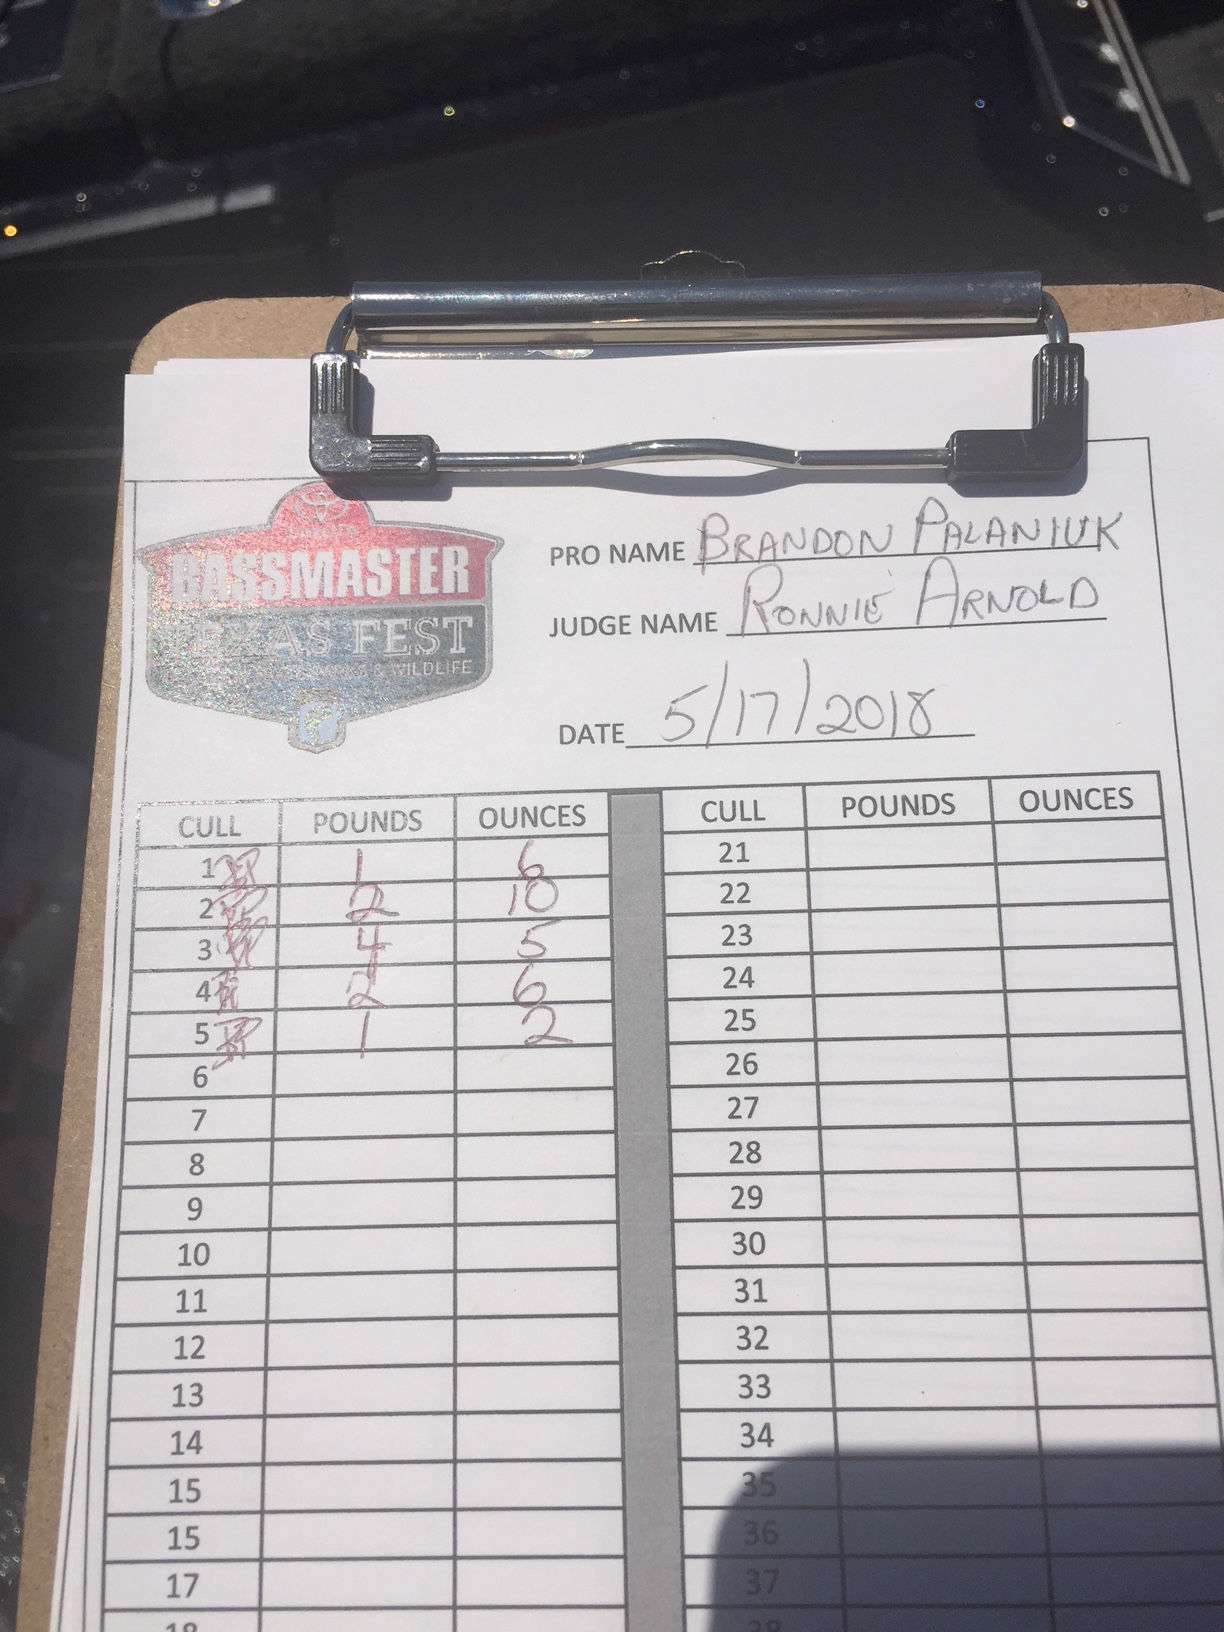 BASSMASTER
TEXAS FEST
& WILDLIFE
PRO NAME BRANDON PALANIUK
JUDGE NAME RONNIE ARNOLD
DATE 5/17/2018
CULL POUNDS OUNCES CULL POUNDS OUNCES
1 BP 1 6 21
2 BP 2 10 22
3 BP 4 5 23
4 2 6 24
5 BP 1 2 25
6 26
7 27
8 28
9 29
10 30
11 31
12 32
13 33
14 34
15 35
15 36
17 37
18 38